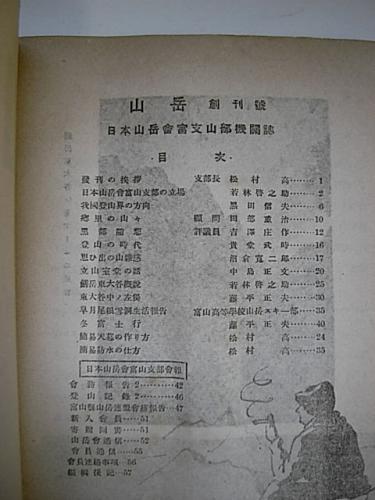 山岳 創刊號
日本山岳會富支山部機關誌
目次
發刊の挨拶 支部長 松村 高 1
日本山岳會富山支部の立場 若林啓之助 2
我國登山界の方向 黒田信夫 6
鄕里の山々 顧問 田部重治 10
黒部隨想 評議員 吉澤庄作 12
登山の時代 貴堂武時 16
思ひ出の山 沼倉寬二郎 17
立山室堂の話 中島正文 20
劔岳東大谷概說 若林啓之助 25
東大谷中ノ左俣 藤平正夫 30
早月尾根雪洞生活報告 富山高等學校山岳スキー部 35
冬富士行 藤平正夫 40
簡易天幕の作り方 松村 高 24
簡易防水の仕方 松村 高 35
日本山岳會富山支部會報
會務報告 2 42
登山記錄 2 46
富山縣山岳連盟會務報告 47
新入會員 51
寄贈圖書 51
山岳會通信 52
會員通信 55
會員連絡事項 56
編輯後記 57